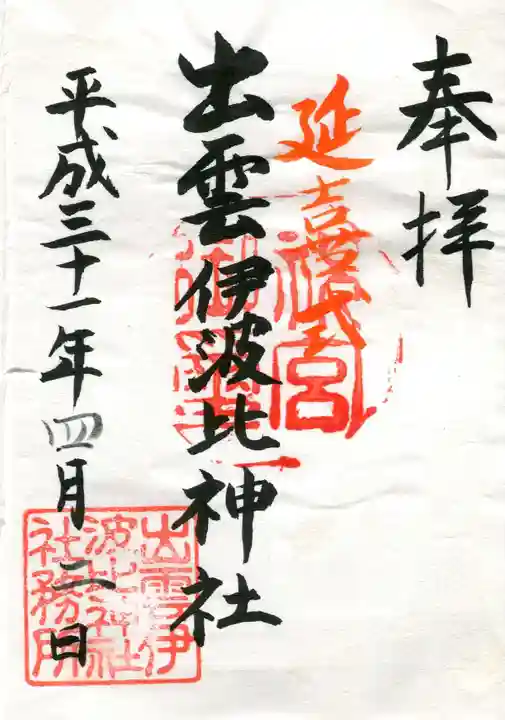 奉拝
延喜式
出雲伊波比神社
平成三十一年四月二日
出雲伊
波比神社
社務所